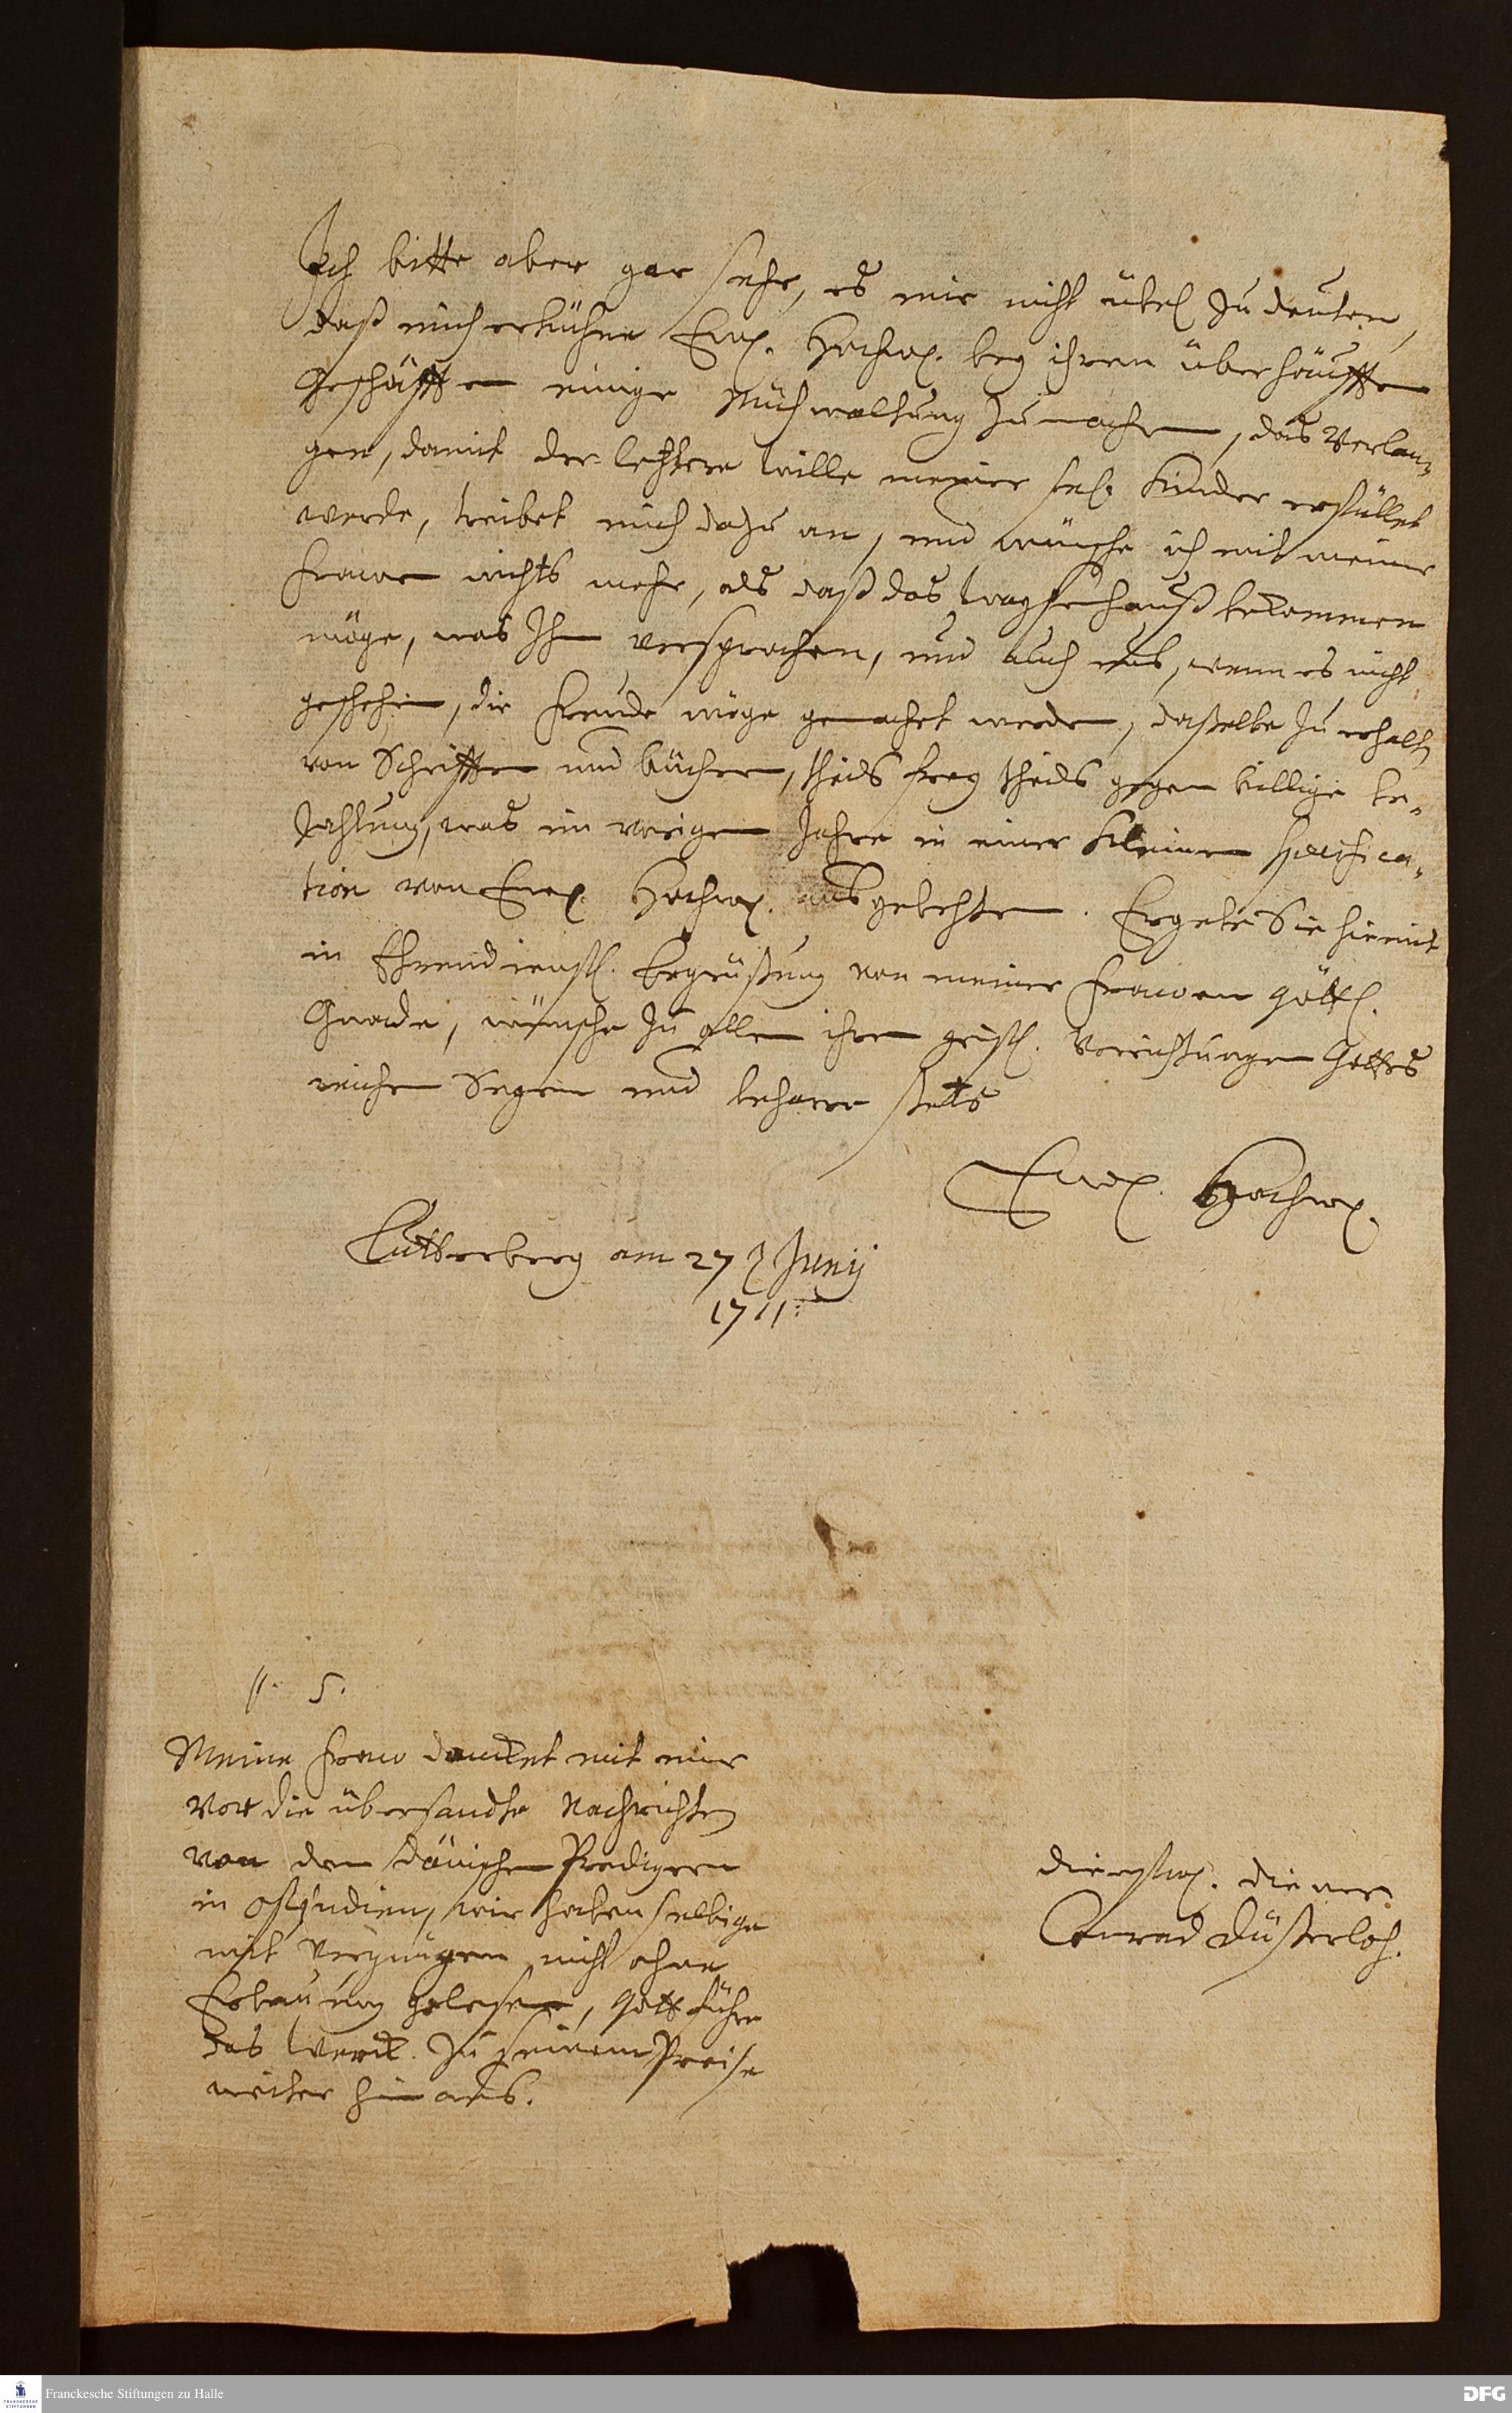 Ich bitte aber gar sehr, es mir nicht übel zu deuten,
daß mich erkühne Ew. Hochw. bey ihren überhäufften
Geschäfften einige Mühwaltung zu machen, das Verlan-
gen, damit der letztere Wille meiner sel. Kinder erfüllet
werde, treibet mich dazu an, und wünsche ich mit meiner
Frawen nichts mehr, als daß das Waysenhauß bekommen
möge, was Ihm versprochen, und auch uns, wenn es nicht
geschehen, die Freude möge gemachet werden, daßelbe zu erhalten
von Schrifften und büchern, theils frey theils gegen billige be-
zahlung, was im vorigen Jahre in einer kleinen Specifica-
tion von Ew. Hochw. ausgebehten. Ergebe Sie hiemit
in Ehrendienstl. begrüßung von meiner Frawen göttl.
Gnade, wünsche zu allen ihren geistl. Verrichtungen Gottes
reichen Segen und beharre stets
Ew. Hochw.
Lutterberg am 27 Junij
1711.
P. S.
Meine Fraw dancket mit mir
vor die übersandte Nachrichten
von den Dänischen Predigern
in OstIndien, wir haben selbige
mit Vergnügen nicht ohne
Erbauung gelesen, Gott führe
das Werck zu seinem Preise
weiter hinaus.
dienstw. diener
Conrad Düsterloh.
Franckesche Stiftungen zu Halle
FRANCKESCHE STIFTUNGEN
DFG